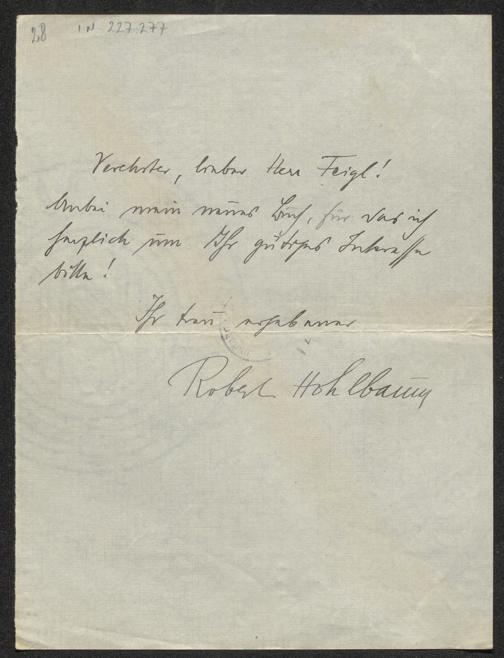 28 IN 227.277
Verehrter, lieber Herr Feigl!
Anbei mein neues Buch, für das ich
herzlich um Ihr gütiges Interesse
bitte!
Ihr treu ergebener
Robert Hohlbaum